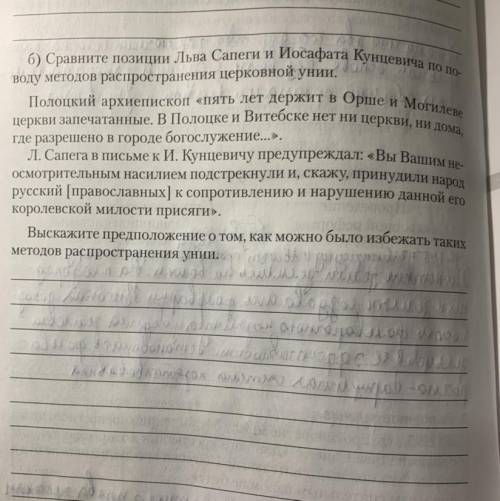 б) Сравните позиции Льва Сапеги и Иосафата Кунцевича по по-
воду методов распространения церковной унии.
Полоцкий архиепископ «пять лет держит в Орше и Могилеве
церкви запечатанные. В Полоцке и Витебске нет ни церкви, ни дома,
где разрешено в городе богослужение...».
Л. Сапега в письме к И. Кунцевичу предупреждал: «Вы Вашим не-
осмотрительным насилием подстрекнули и, скажу, принудили народ
русский [православных] к сопротивлению и нарушению данной его
королевской милости присяги».
Выскажите предположение о том, как можно было избежать таких
методов распространения унии.